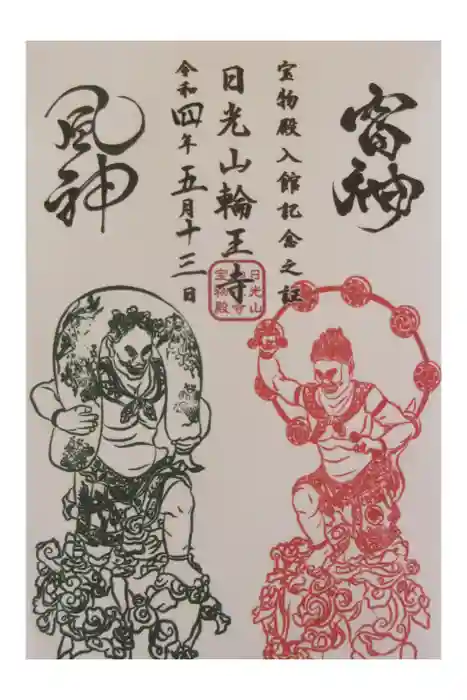 雷神
宝物殿入館記念之証
日光山輪王寺
令和四年五月十三日
風神
日光山
宝物殿